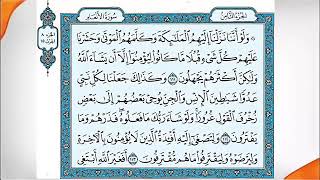 الجزء الثامن
سورة الأنعام
وَلَوْ أَنَّنَا نَزَّلْنَا إِلَيْهِمُ الْمَلَٰئِكَةَ وَكَلَّمَهُمُ الْمَوْتَىٰ وَحَشَرْنَا
عَلَيْهِمْ كُلَّ شَيْءٍ قُبُلًا مَّا كَانُوا لِيُؤْمِنُوا إِلَّا أَن يَشَاءَ اللَّهُ
وَلَٰكِنَّ أَكْثَرَهُمْ يَجْهَلُونَ ١١١ وَكَذَٰلِكَ جَعَلْنَا لِكُلِّ نَبِيٍّ
عَدُوًّا شَيَٰطِينَ الْإِنسِ وَالْجِنِّ يُوحِي بَعْضُهُمْ إِلَىٰ بَعْضٍ
زُخْرُفَ الْقَوْلِ غُرُورًا وَلَوْ شَاءَ رَبُّكَ مَا فَعَلُوهُ فَذَرْهُمْ وَمَا
يَفْتَرُونَ ١١٢ وَلِتَصْغَىٰ إِلَيْهِ أَفْـِٔدَةُ الَّذِينَ لَا يُؤْمِنُونَ بِالْآخِرَةِ
وَلِيَرْضَوْهُ وَلِيَقْتَرِفُوا مَا هُم مُّقْتَرِفُونَ ١١٣ أَفَغَيْرَ اللَّهِ أَبْتَغِي